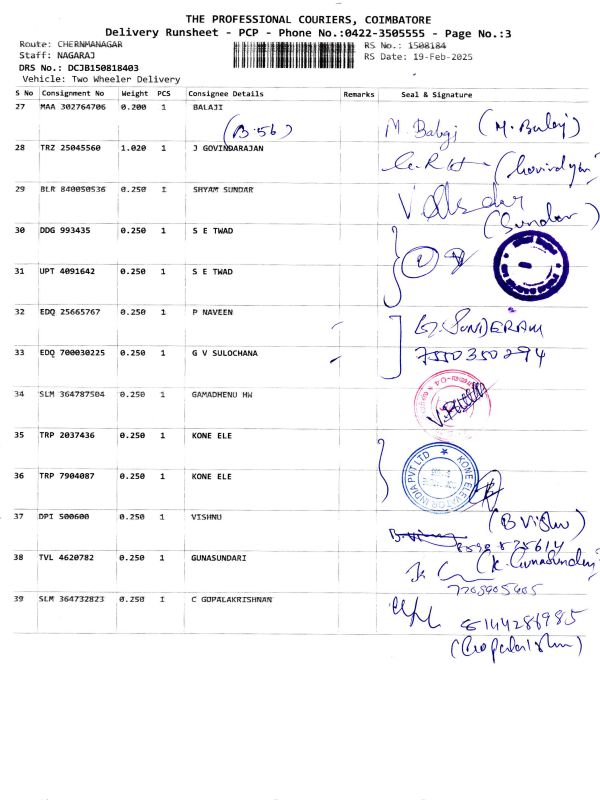 THE PROFESSIONAL COURIERS, COIMBATORE
Delivery Runsheet - PCP - Phone No.:0422-3505555 - Page No.:3
Route: CHERNMANAGAR RS No.: 1508184
Staff: NAGARAJ RS Date: 19-Feb-2025
DRS No.: DCJB150818403
Vehicle: Two Wheeler Delivery
S No Consignment No Weight PCS Consignee Details Remarks Seal & Signature
27 MAA 302764706 0.200 1 BALAJI
(B.56) M. Balaji (M. Balaj)
28 TRZ 25045560 1.020 1 J GOVINDARAJAN
29 BLR 840050536 0.250 1 SHYAM SUNDAR
(Sundar)
30 DDG 993435 0.250 1 S E TWAD
31 UPT 4091642 0.250 1 S E TWAD
32 EDQ 25665767 0.250 1 P NAVEEN
G. SUNDERAM
33 EDQ 700030225 0.250 1 G V SULOCHANA
7550350294
34 SLM 364787504 0.250 1 GAMADHENU HW
35 TRP 2037436 0.250 1 KONE ELE
KONE ELEVATOR INDIA PVT LTD
36 TRP 7904087 0.250 1 KONE ELE
37 DPI 500600 0.250 1 VISHNU
(B Vishnu)
38 TVL 4620782 0.250 1 GUNASUNDARI
(K. Gunasundari)
7208905405
39 SLM 364732823 0.250 1 C GOPALAKRISHNAN
(Gopalakrishnan)